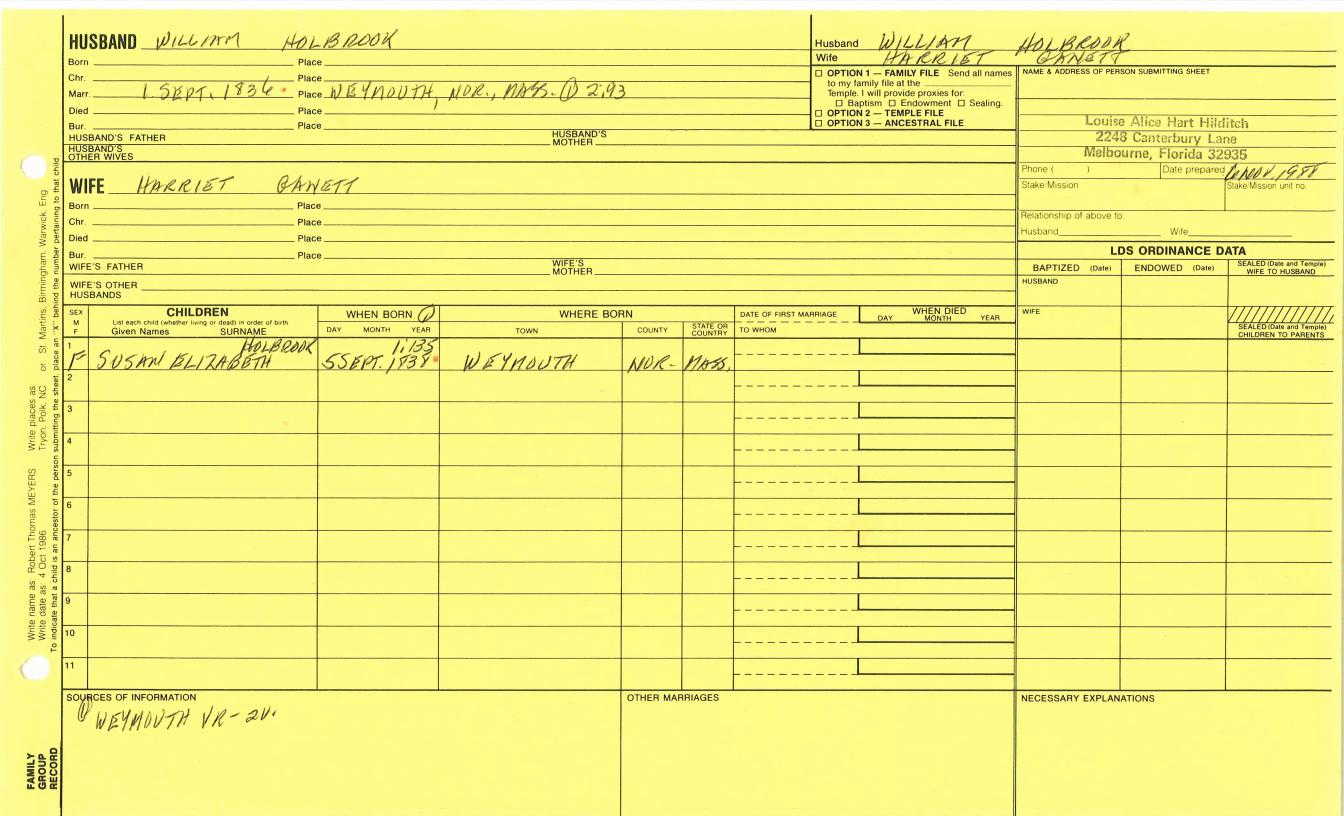 HUSBAND WILLIAM HOLBROOK
Born Place
Chr. Place
Marr. 1 SEPT. 1836 Place WEYMOUTH, NOR., MASS. ① 2:93
Died Place
Bur. Place
HUSBAND'S FATHER HUSBAND'S MOTHER
HUSBAND'S OTHER WIVES
Husband WILLIAM HOLBROOK
Wife HARRIET GANETT
☐ OPTION 1 — FAMILY FILE Send all names
to my family file at the
Temple. I will provide proxies for:
☐ Baptism ☐ Endowment ☐ Sealing.
☐ OPTION 2 — TEMPLE FILE
☐ OPTION 3 — ANCESTRAL FILE
NAME & ADDRESS OF PERSON SUBMITTING SHEET
Louise Alice Hart Hilditch
2248 Canterbury Lane
Melbourne, Florida 32935
Phone ( ) Date prepared NOV. 1988
Stake Mission Stake Mission unit no.
Relationship of above to:
Husband Wife
WIFE HARRIET GANETT
Born Place
Chr. Place
Died Place
Bur. Place
WIFE'S FATHER WIFE'S MOTHER
WIFE'S OTHER HUSBANDS
LDS ORDINANCE DATA
BAPTIZED (Date) ENDOWED (Date) SEALED (Date and Temple) WIFE TO HUSBAND
HUSBAND
WIFE
SEALED (Date and Temple) CHILDREN TO PARENTS
SEX M F CHILDREN WHEN BORN ① WHERE BORN DATE OF FIRST MARRIAGE WHEN DIED
List each child (whether living or dead) in order of birth
Given Names SURNAME DAY MONTH YEAR TOWN COUNTY STATE OR COUNTRY TO WHOM DAY MONTH YEAR
1 HOLBROOK 1:135
F SUSAN ELIZABETH 5 SEPT. 1838 WEYMOUTH NOR- MASS.
2
3
4
5
6
7
8
9
10
11
SOURCES OF INFORMATION OTHER MARRIAGES NECESSARY EXPLANATIONS
① WEYMOUTH VR - 2V.
Write name as: Robert Thomas MEYERS Write places as: Tryon, Polk, NC or St. Martins, Birmingham, Warwick, Eng
Write date as: 4 Oct 1986
To indicate that a child is an ancestor of the person submitting the sheet, place an "X" behind the number pertaining to that child
FAMILY
GROUP
RECORD